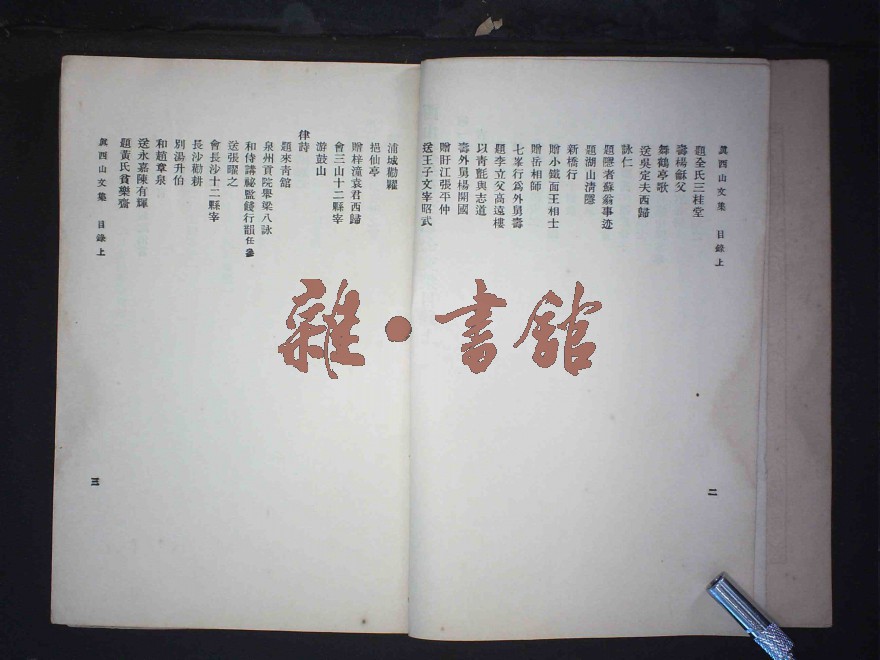 眞西山文集　目錄上
題全氏三桂堂
壽楊龢父
舞鶴亭歌
送吳定夫西歸
詠仁
題隱者蘇翁事迹
題湖山清隱
新橋行
贈小鐵面王相士
贈岳相師
七峯行爲外舅壽
題李立父高遠樓
以青氈與志道
壽外舅楊開國
贈盱江張平仲
送王子文宰昭武
二
浦城勸糶
挹仙亭
贈梓潼袁君西歸
會三山十二縣宰
游鼓山
律詩
題來青館
泉州貢院舉梁八詠
和侍講祕監餞行韻任參
送張曜之
會長沙十二縣宰
長沙勸耕
別湯升伯
和趙章泉
送永嘉陳有輝
題黃氏貧樂齋
眞西山文集　目錄上
三
雜·書館